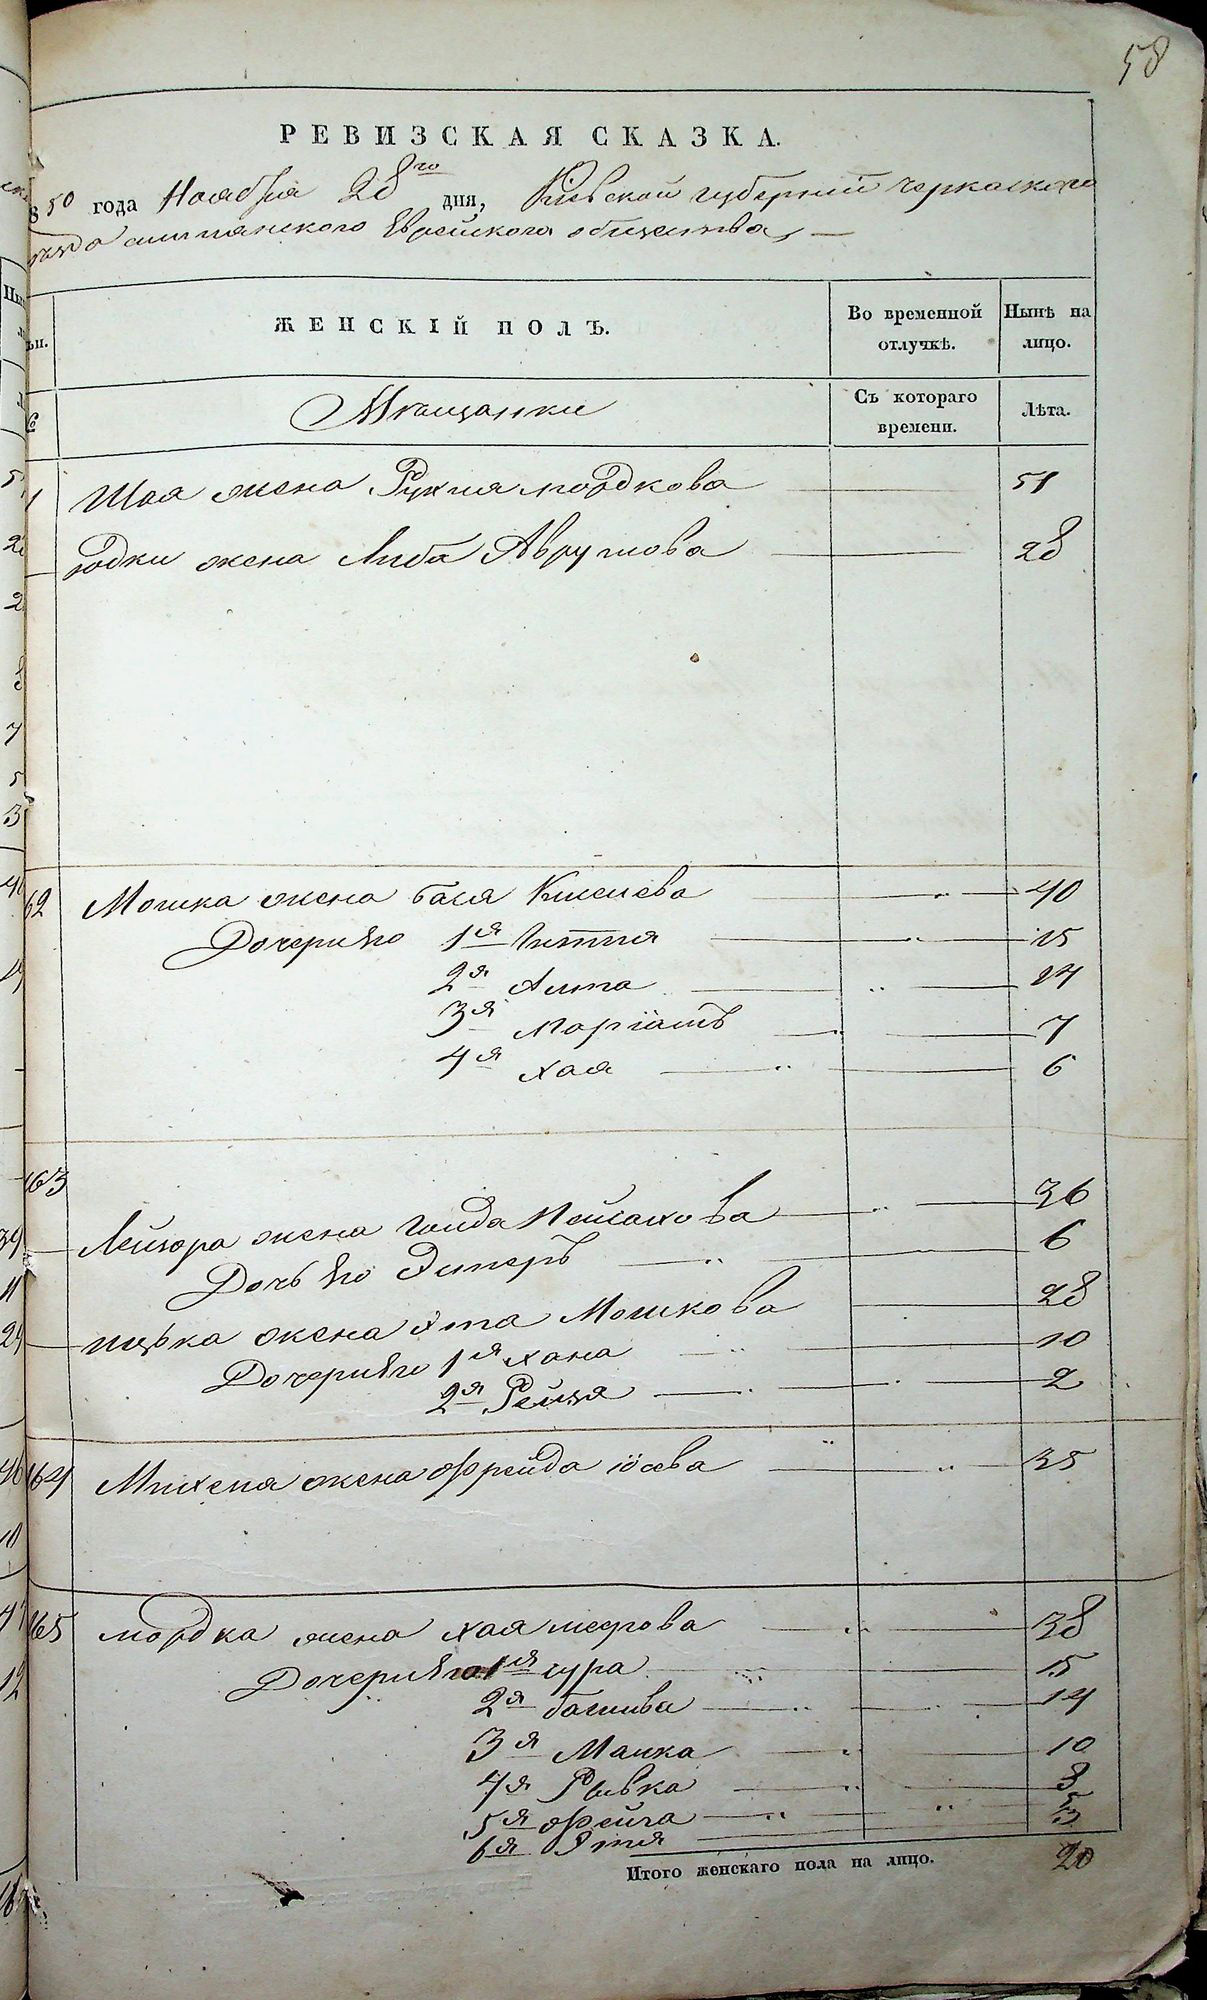 58
РЕВИЗСКАЯ СКАЗКА.
50 года Ноября 28го дня, Кіевской губерніи Черкаского
Еврейского общества,
ЖЕНСКІЙ ПОЛЪ.
Во временной отлучкѣ.
Нынѣ на лицо.
Мѣщанки
Съ котораго времени.
Лѣта.
1 Шая жена Рухля мордкова 51
Юдки жена Либа Аврумова 28
62 Мошка жена бася 40
Дочери его 1я 15
2я 14
3я Маріамъ 7
4я хая 6
163
Лейзора жена голда Пейсахова 36
Дочь его Эстеръ 6
ицька жена Эта Мошкова 28
Дочери его 1я хана 10
2я Рейзя 2
164 Михеля жена Фрейда іосева 35
165 мордка жена хая меерова 38
Дочери его 1я сура 15
2я басшива 14
3я Малка 10
4я Рывка 8
5я Фейга 5
6я Этля 3
Итого женскаго пола на лицо. 20